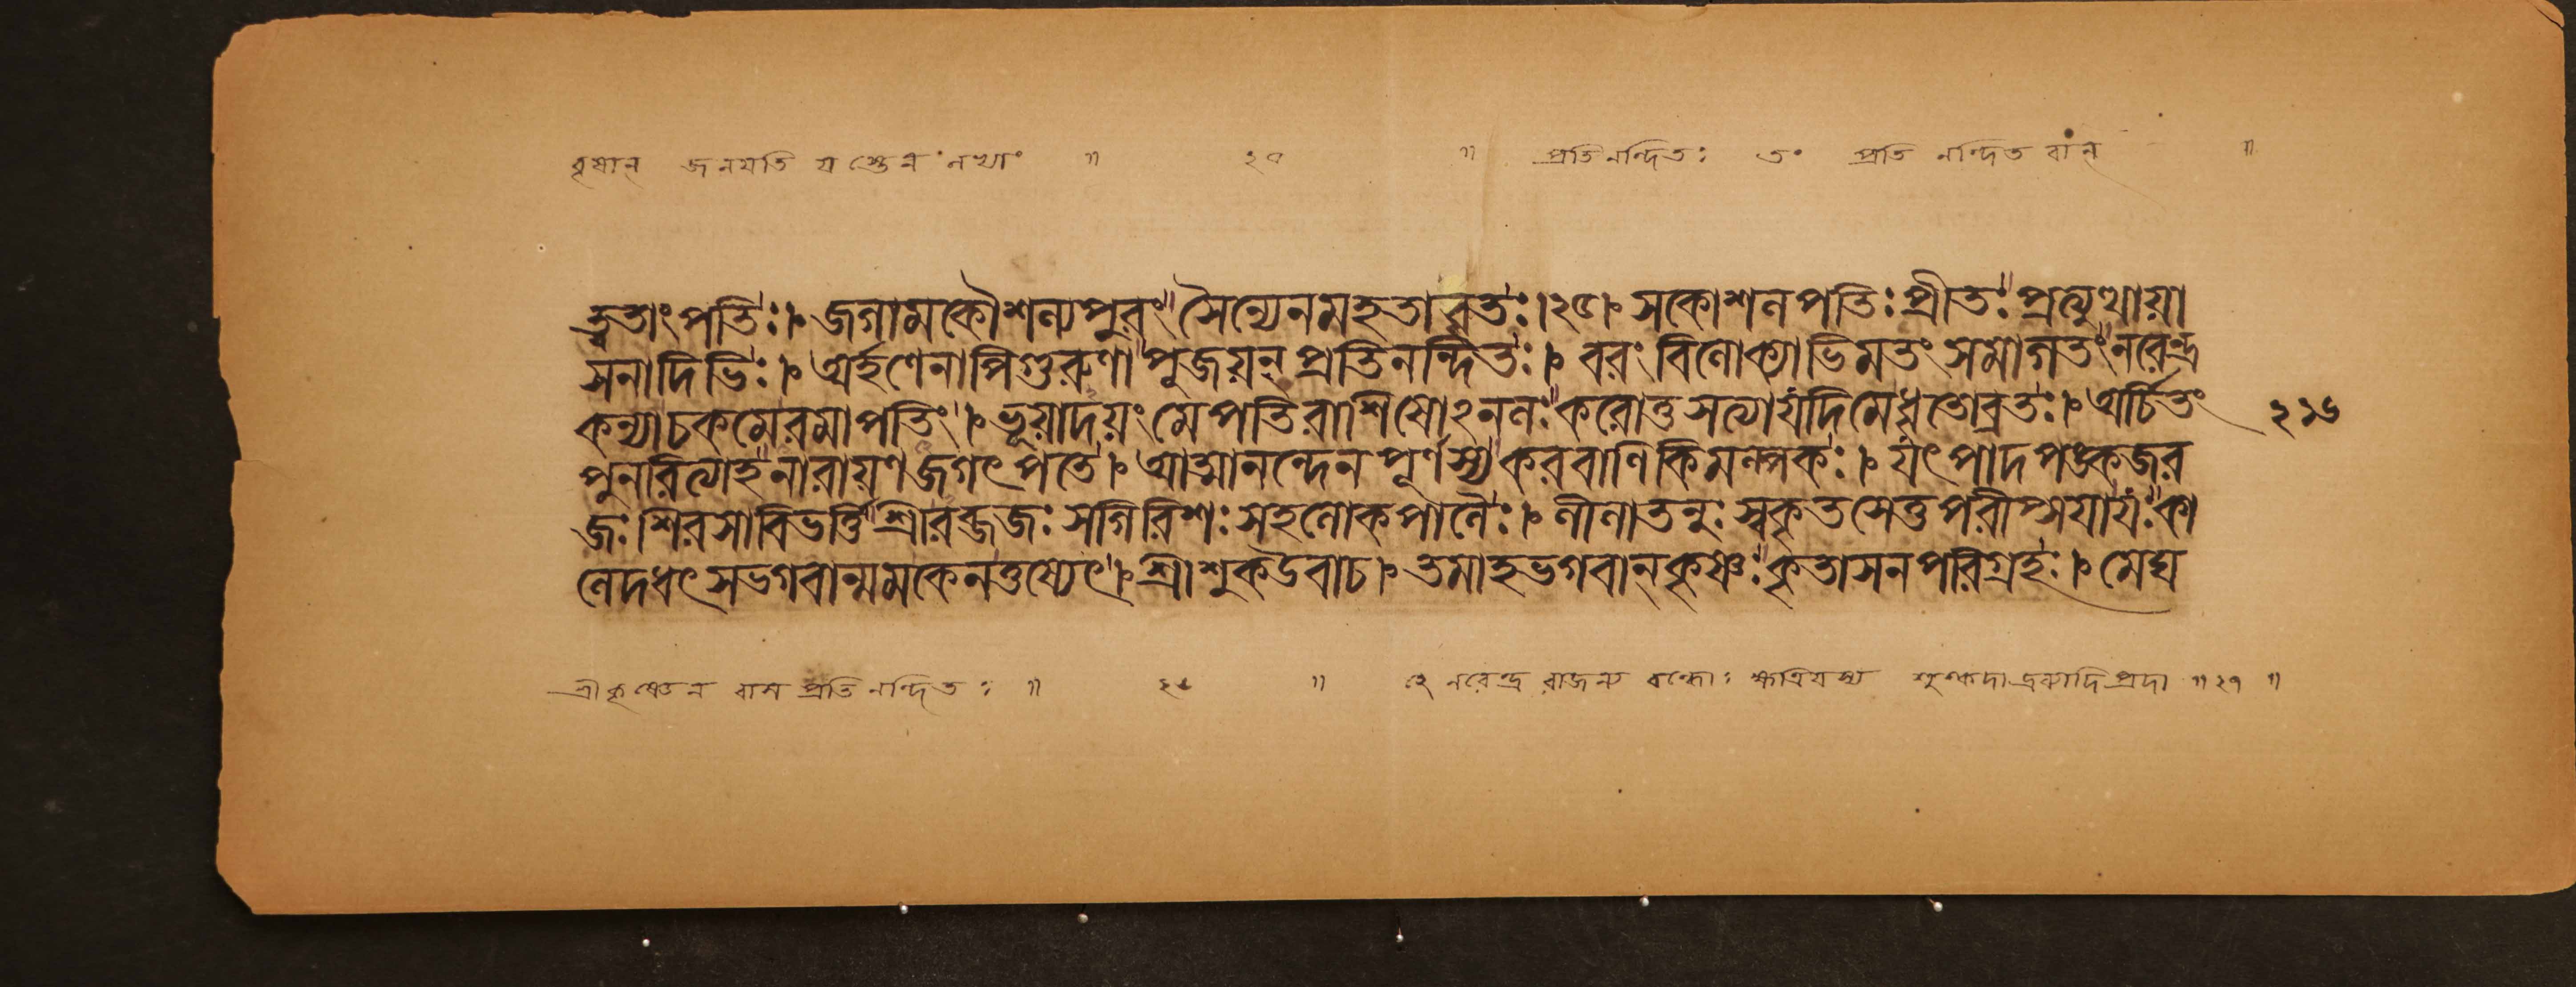 বৃষান্ জনযতি য স্তেন ংনখাং ॥ ২৫ ॥ প্রতিনন্দিতঃ তং প্রতি নন্দিত বান্ ॥
ত্বতাংপতিঃ।জগামকৌশল্যপুরং"সৈন্যেনমহতাবৃতঃ।২৫।সকোশলপতিঃপ্রীতঃ"প্রত্যুত্থায়া
সনাদিভিঃ।অর্হণেনাপিগুরুণা"পূজয়ন্প্রতিনন্দিতঃ।বরংবিলোক্যাভিমতংসমাগতং"নরেন্দ্র
কন্যাচকমেরমাপতিং।ভূয়াদয়ংমেপতিরাশিষোঽনলঃ"করোতুসত্যাযদিমেধৃতোব্রতঃ।অর্চিতং
২১৬
পুনরিত্যাহ"নারায়ণজগৎপতে।আত্মানন্দেনপূর্ণস্য"করবাণিকিমল্পকঃ।যৎপাদপঙ্কজর
জঃশিরসাবিভর্ত্তি"শ্রীরব্জজঃসগিরিশঃসহলোকপালৈঃ।লীলাতনুঃস্বকৃতসেতুপরীপ্সযাযঃ"কা
লেদধৎসভগবান্মমকেনতুষ্যেৎ।শ্রীশুকউবাচ।তমাহভগবান্কৃষ্ণঃ"কৃতাসনপরিগ্রহঃ।মেঘ
শ্রীকৃষ্ণেন বাস প্রতিনন্দিতঃ ॥ ২৬ ॥ হে নরেন্দ্র রাজন্য বন্ধোঃ ক্ষত্রিযস্য ॥ ২৭ ॥